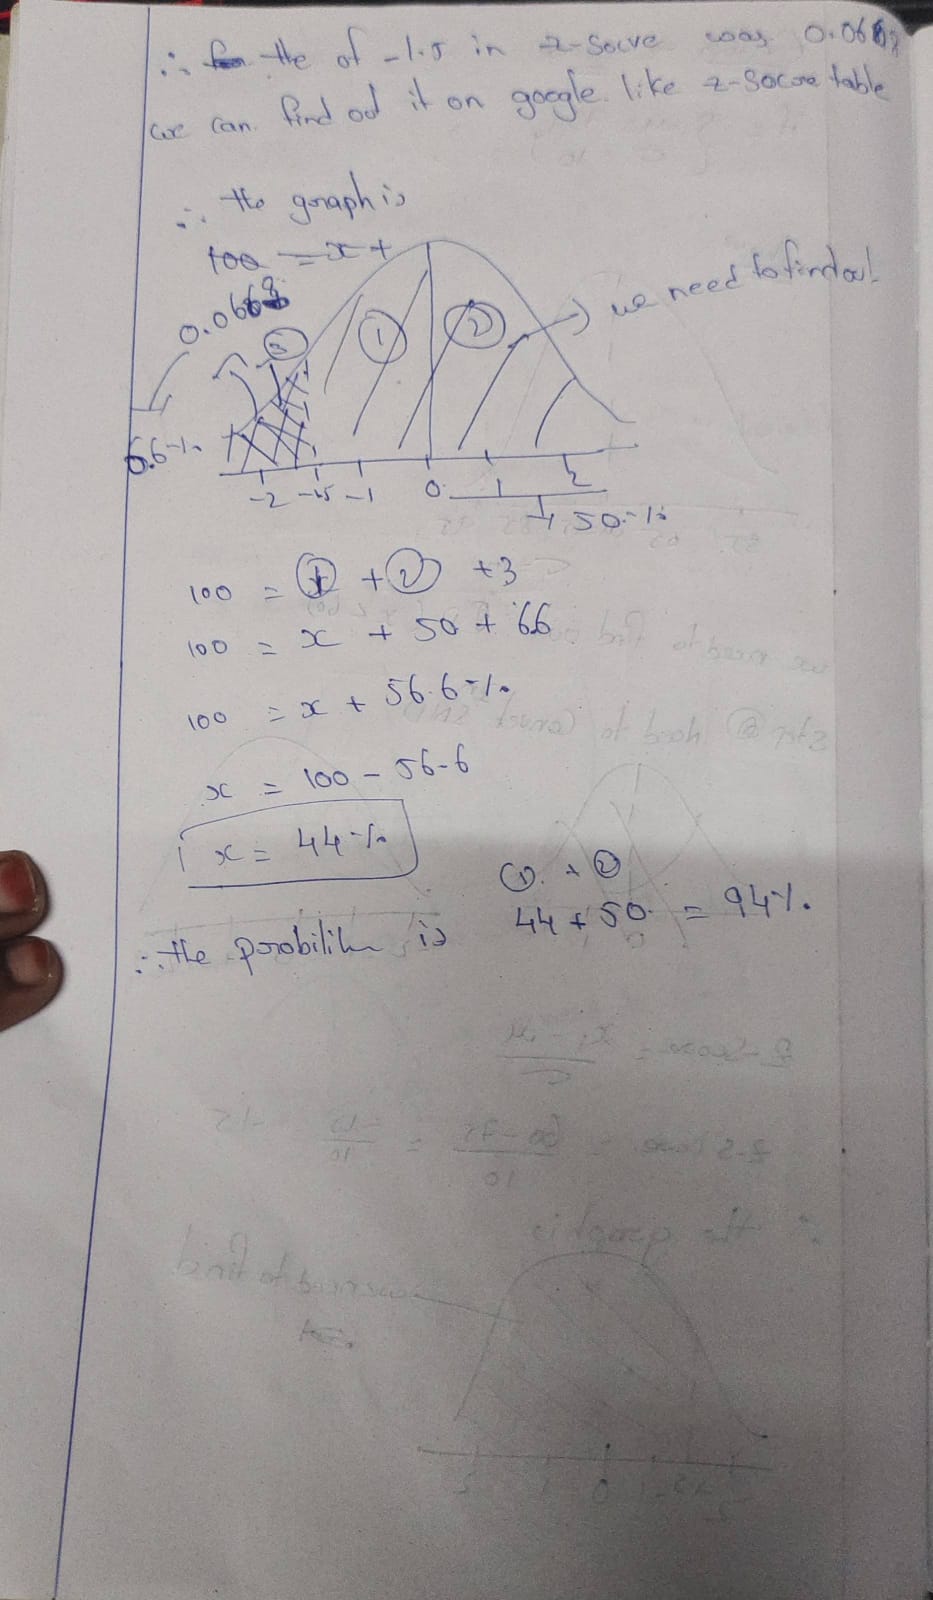 ∴ the of -1.5 in z-socve was 0.0668
we can find od it on google like z-socore table
∴ the goraph is
100 = x +
0.0668
③ ① ② we need to find ou!
6.6%
-2 -1.5 -1 0 1 2
50%
100 = ① + ② + 3
100 = x + 50 + 6.6
100 = x + 56.6%
x = 100 - 56.6
x = 44%
① + ②
∴ the porobilih is 44 + 50 = 94%.